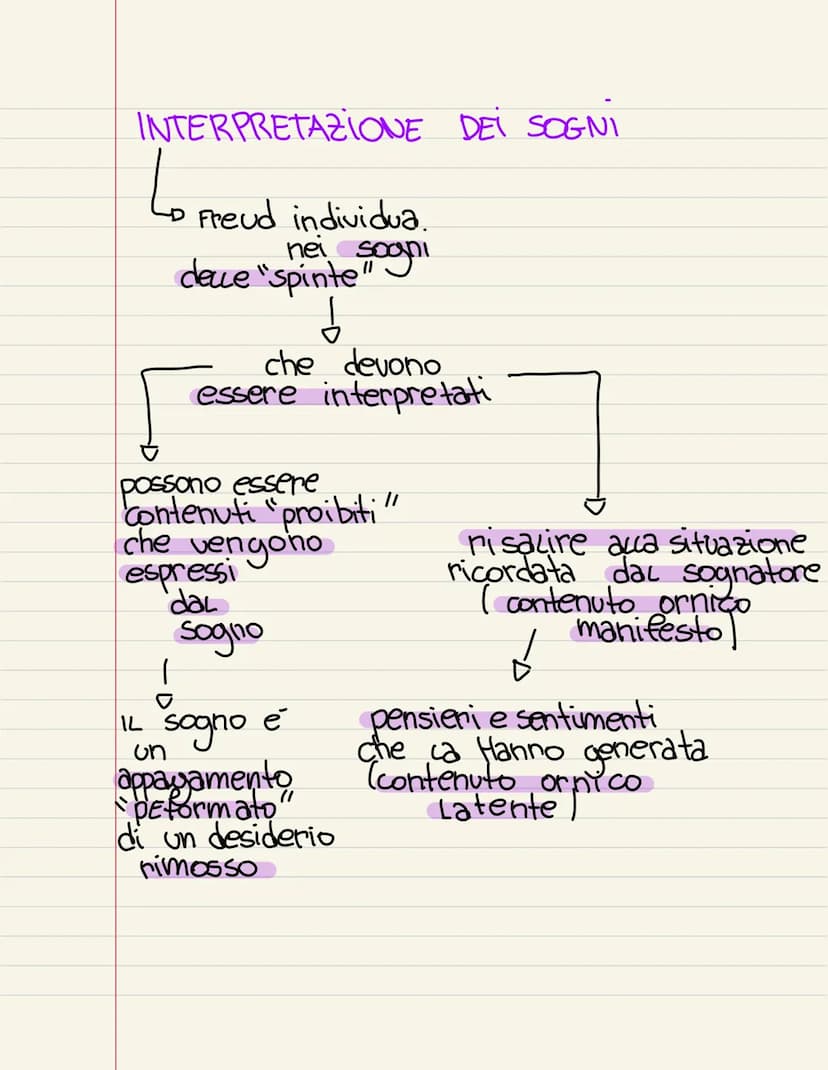 INTERPRETAZIONE DEI SOGNI
Freud individua.
nei sogni
delle "spinte"
che devono
essere interpretati
possono essere
contenuti "proibiti"
che vengono
espressi
dal
sogno
IL sogno é
un
appagamento
"DEformato"
di un desiderio
rimosso
risalire alla situazione
ricordata dal sognatore
(contenuto ornico
manifesto)
pensieri e sentimenti
che la Hanno generata
(contenuto ornico
Latente)